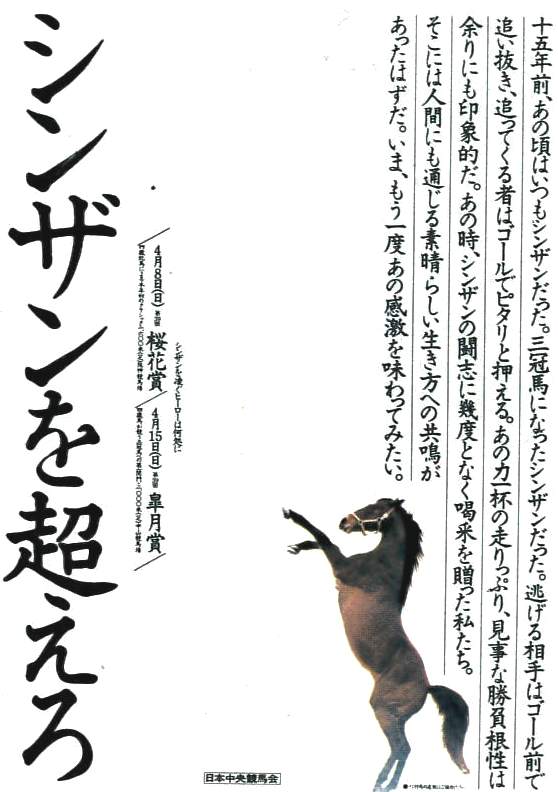 十五年前、あの頃はいつもシンザンだった。三冠馬になったシンザンだった。逃げる相手はゴール前で
追い抜き、追ってくる者は、ゴールでピタリと押える。あの力一杯の走りっぷり、見事な勝負根性は
余りにも印象的だ。あの時、シンザンの闘志に幾度となく喝采を贈った私たち。
そこには人間にも通じる素晴らしい生き方への共鳴が
あったはずだ。いま、もう一度あの感激を味わってみたい。
シンザンを凌ぐヒーローは何処に
4月8日(日) 第39回 桜花賞
4月15日(日) 第39回 皐月賞
シンザンを超えろ
日本中央競馬会